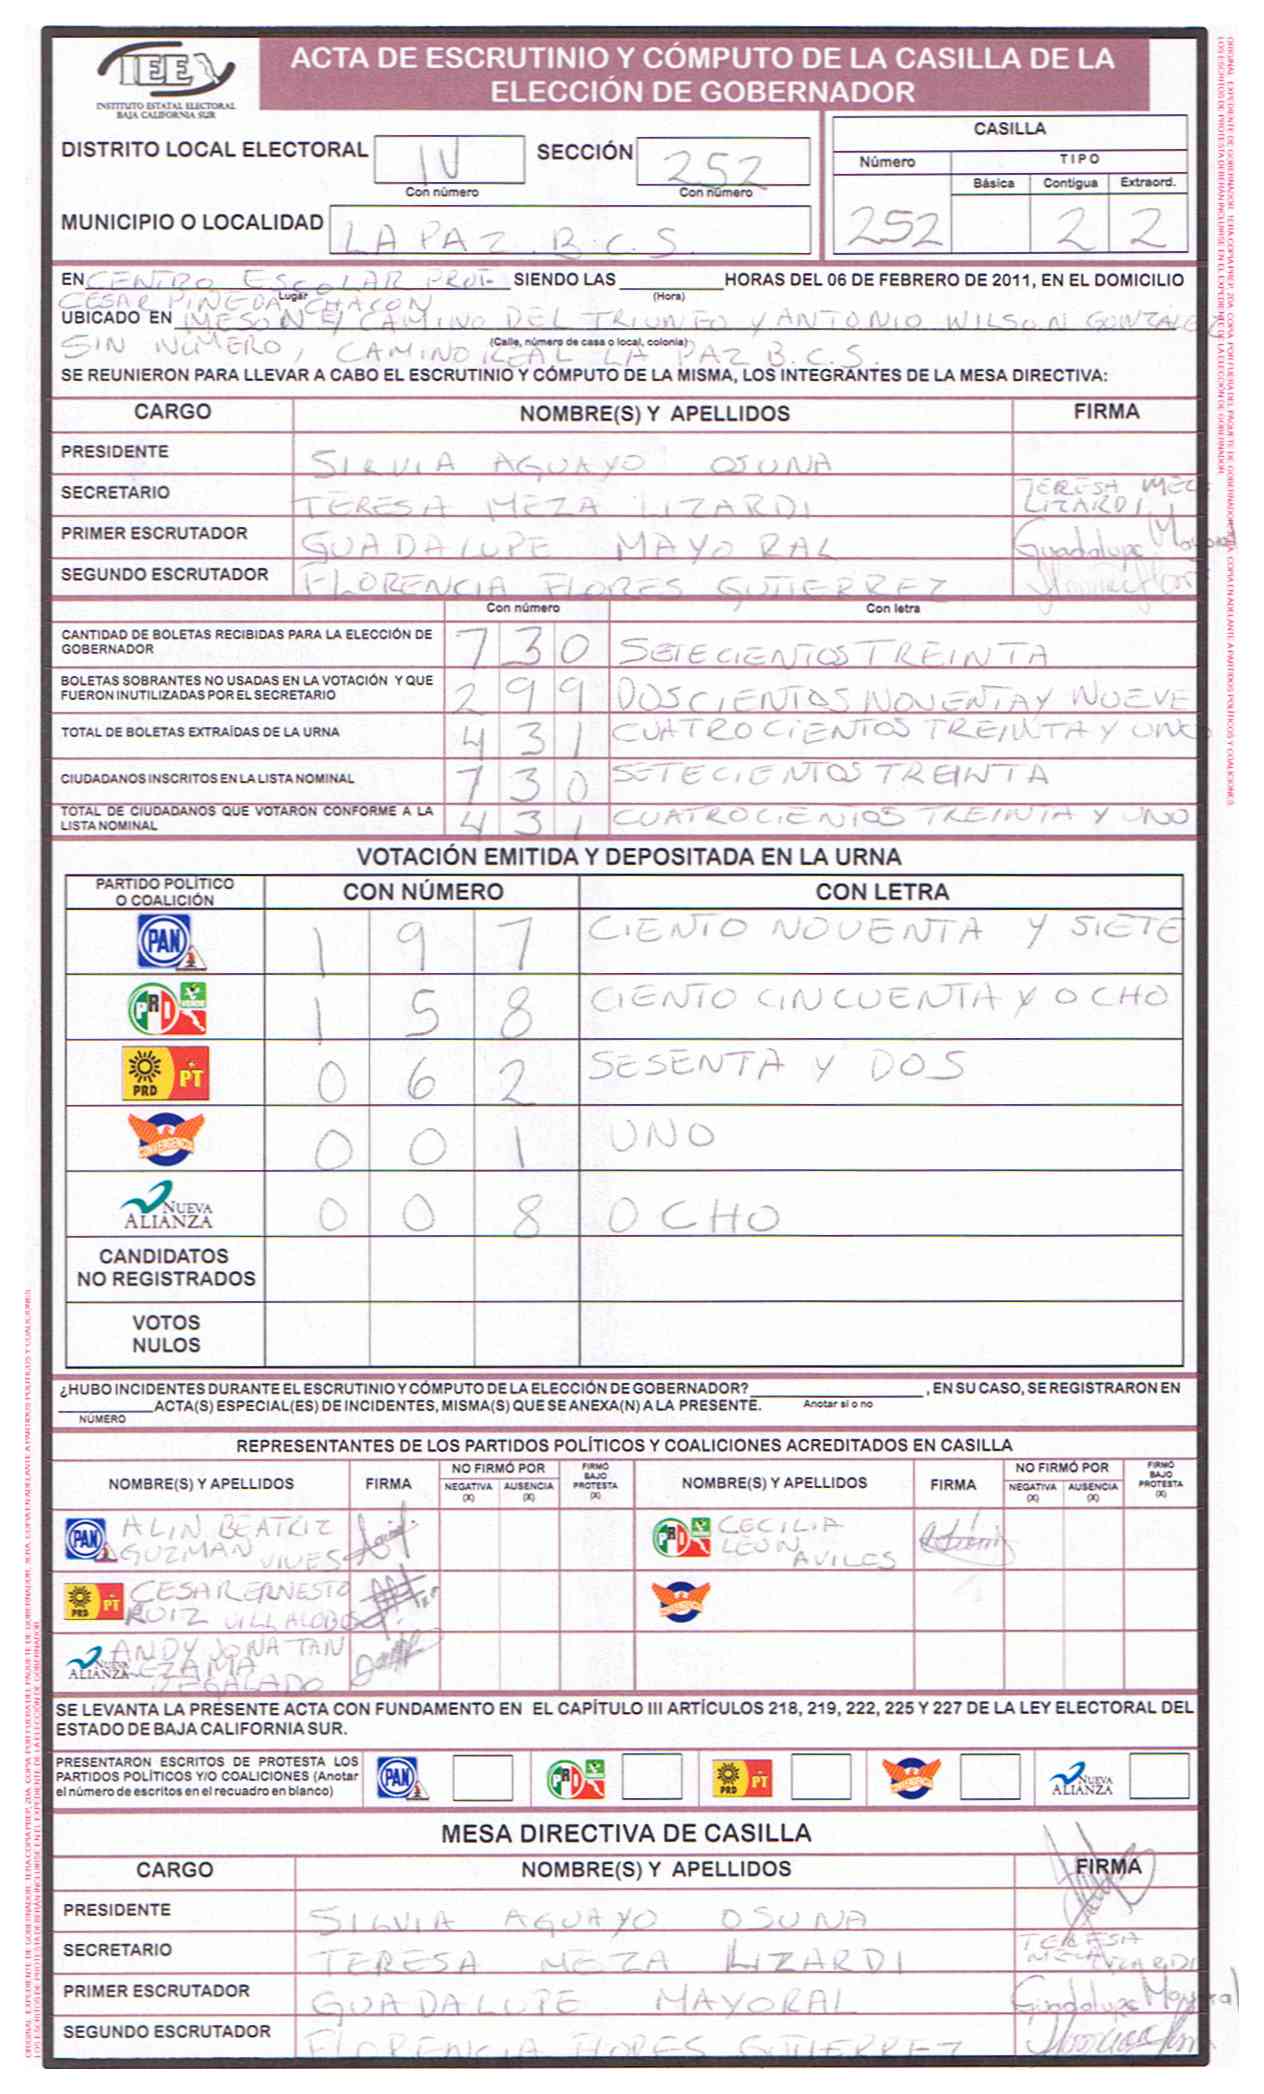 IEE
INSTITUTO ESTATAL ELECTORAL
BAJA CALIFORNIA SUR
ACTA DE ESCRUTINIO Y CÓMPUTO DE LA CASILLA DE LA
ELECCIÓN DE GOBERNADOR
DISTRITO LOCAL ELECTORAL IV SECCIÓN 252
Con número Con número
MUNICIPIO O LOCALIDAD LA PAZ. B.C.S.
CASILLA
Número TIPO
Básica Contigua Extraord.
252 2 2
EN CENTRO ESCOLAR PROF. SIENDO LAS HORAS DEL 06 DE FEBRERO DE 2011, EN EL DOMICILIO
CESAR PINEDA CHACON Lugar (Hora)
UBICADO EN MESON E/ CAMINO DEL TRIUNFO Y ANTONIO WILSON GONZALEZ
SIN NÚMERO, CAMINO REAL LA PAZ B.C.S.
(Calle, número de casa o local, colonia)
SE REUNIERON PARA LLEVAR A CABO EL ESCRUTINIO Y CÓMPUTO DE LA MISMA, LOS INTEGRANTES DE LA MESA DIRECTIVA:
CARGO NOMBRE(S) Y APELLIDOS FIRMA
PRESIDENTE SILVIA AGUAYO OSUNA
SECRETARIO TERESA MEZA LIZARDI TERESA MEZA LIZARDI
PRIMER ESCRUTADOR GUADALUPE MAYORAL Guadalupe Mayoral
SEGUNDO ESCRUTADOR FLORENCIA FLORES GUTIERREZ
Con número Con letra
CANTIDAD DE BOLETAS RECIBIDAS PARA LA ELECCIÓN DE
GOBERNADOR 730 SETECIENTOS TREINTA
BOLETAS SOBRANTES NO USADAS EN LA VOTACIÓN Y QUE
FUERON INUTILIZADAS POR EL SECRETARIO 299 DOSCIENTOS NOVENTA Y NUEVE
TOTAL DE BOLETAS EXTRAÍDAS DE LA URNA 431 CUATROCIENTOS TREINTA Y UNO
CIUDADANOS INSCRITOS EN LA LISTA NOMINAL 730 SETECIENTOS TREINTA
TOTAL DE CIUDADANOS QUE VOTARON CONFORME A LA
LISTA NOMINAL 431 CUATROCIENTOS TREINTA Y UNO
VOTACIÓN EMITIDA Y DEPOSITADA EN LA URNA
PARTIDO POLÍTICO
O COALICIÓN CON NÚMERO CON LETRA
PAN 1 9 7 CIENTO NOVENTA Y SIETE
PRI VERDE 1 5 8 CIENTO CINCUENTA Y OCHO
PRD PT 0 6 2 SESENTA Y DOS
CONVERGENCIA 0 0 1 UNO
NUEVA ALIANZA 0 0 8 OCHO
CANDIDATOS
NO REGISTRADOS
VOTOS
NULOS
¿HUBO INCIDENTES DURANTE EL ESCRUTINIO Y CÓMPUTO DE LA ELECCIÓN DE GOBERNADOR? , EN SU CASO, SE REGISTRARON EN
ACTA(S) ESPECIAL(ES) DE INCIDENTES, MISMA(S) QUE SE ANEXA(N) A LA PRESENTE. Anotar si o no
NÚMERO
REPRESENTANTES DE LOS PARTIDOS POLÍTICOS Y COALICIONES ACREDITADOS EN CASILLA
NOMBRE(S) Y APELLIDOS FIRMA NO FIRMÓ POR NEGATIVA (X) AUSENCIA (X) FIRMÓ BAJO PROTESTA (X) NOMBRE(S) Y APELLIDOS FIRMA NO FIRMÓ POR NEGATIVA (X) AUSENCIA (X) FIRMÓ BAJO PROTESTA (X)
PAN ALIN BEATRIZ GUZMAN VIVES PRI VERDE CECILIA LEON AVILES
PRD PT CESAR ERNESTO RUIZ VILLALOBOS CONVERGENCIA
NUEVA ALIANZA ANDY JONATAN LEZAMA
SE LEVANTA LA PRESENTE ACTA CON FUNDAMENTO EN EL CAPÍTULO III ARTÍCULOS 218, 219, 222, 225 Y 227 DE LA LEY ELECTORAL DEL
ESTADO DE BAJA CALIFORNIA SUR.
PRESENTARON ESCRITOS DE PROTESTA LOS
PARTIDOS POLÍTICOS Y/O COALICIONES (Anotar
el número de escritos en el recuadro en blanco) PAN PRI VERDE PRD PT CONVERGENCIA NUEVA ALIANZA
MESA DIRECTIVA DE CASILLA
CARGO NOMBRE(S) Y APELLIDOS FIRMA
PRESIDENTE SILVIA AGUAYO OSUNA
SECRETARIO TERESA MEZA LIZARDI TERESA MEZA LIZARDI
PRIMER ESCRUTADOR GUADALUPE MAYORAL Guadalupe Mayoral
SEGUNDO ESCRUTADOR FLORENCIA FLORES GUTIERREZ